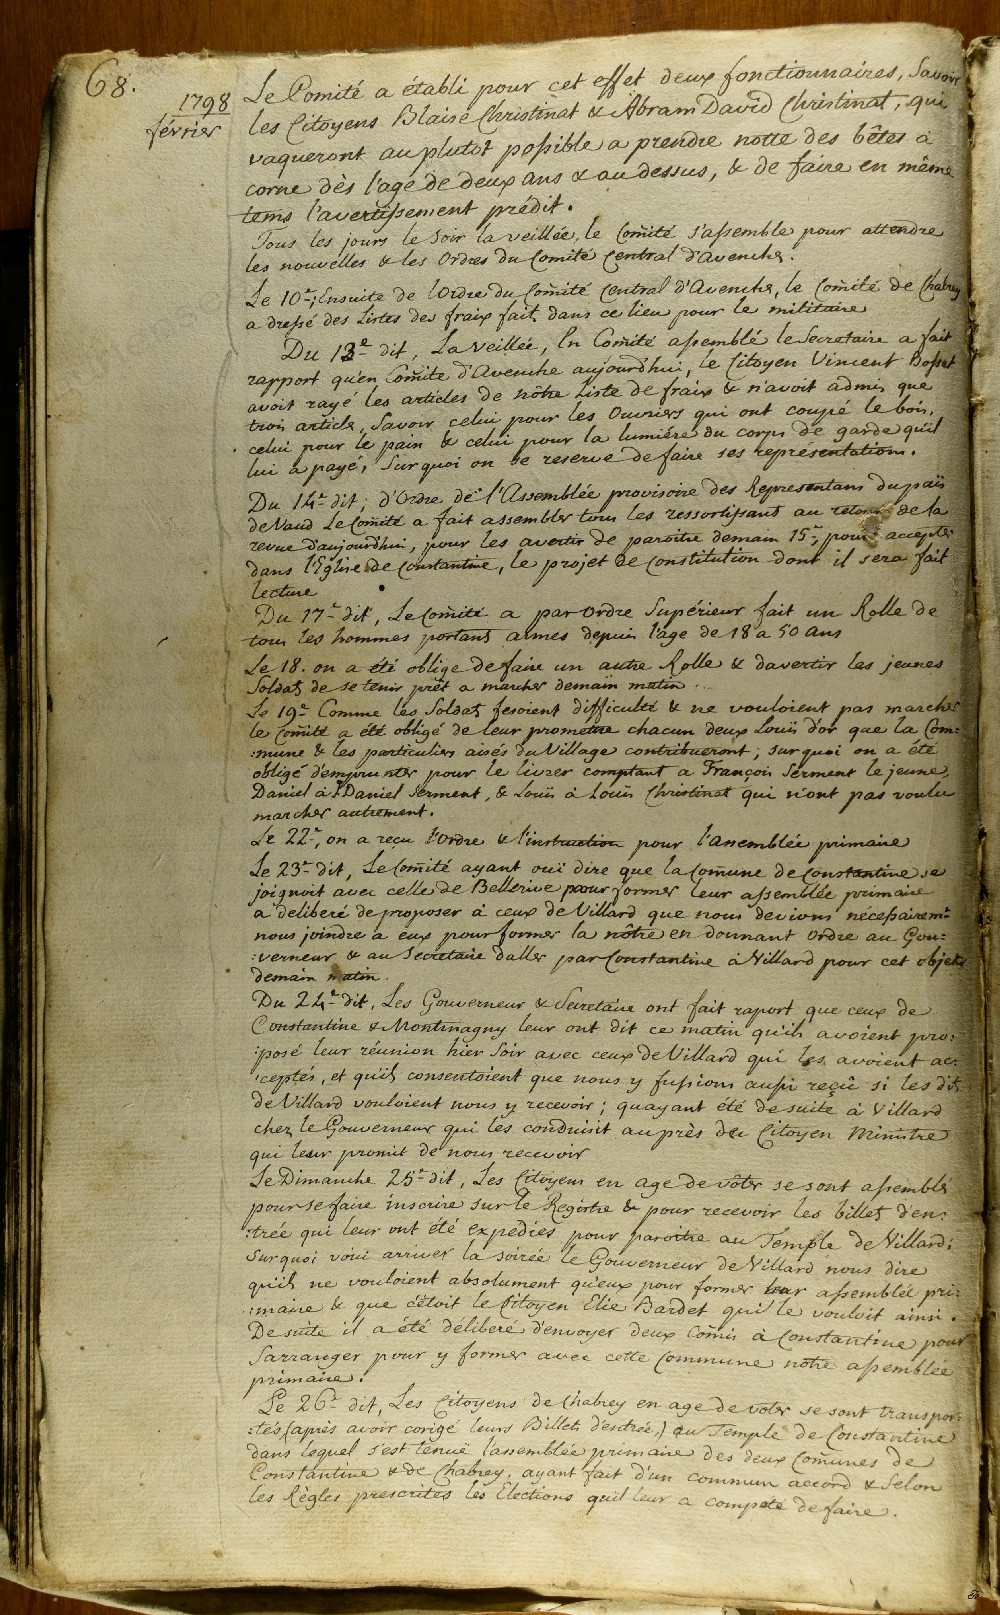 68.
1798
février
Le Comité a établi pour cet effet deux fonctionnaires, Savoir
les Citoyens Blaise Christinat & Abram David Christinat, qui
vaqueront au plutot possible a prendre notte des bêtes a
corne dès l'age de deux ans & au dessus, & de faire en même
tems l'avertissement prédit.
Tous les jours le soir la veillée, le Comité s'assemble pour attendre
les nouvelles & les Ordres du Comité Central d'Avenche.
Le 10e; Ensuite de l'Ordre du Comité Central d'Avenche, le Comité de Chabrey
a dressé des Listes des fraix fait dans ce lieu pour le militaire
Du 13e dit, La veillée, En Comité assemblé le Secretaire a fait
rapport qu'en Comité d'Avenche aujourd'hui, le Citoyen Vincent Bosset
avoit rayé les articles de nôtre Liste de fraix & n'avoit admis que
trois articles, Savoir celui pour les Ouvriers qui ont coupé le bois,
celui pour le pain & celui pour la lumiére du corps de garde qu'il
lui a payé, Sur quoi on se reserve de faire ses representations.
Du 14e dit; d'Ordre de l'Assemblée provisoire des Representans du païs
de Vaud Le Comité a fait assembler tous les ressortissans au retour de la
revue d'aujourd'hui, pour les avertir de paroitre demain 15e, pour accepter
dans l'Eglise de Constantine, le projet de Constitution dont il sera fait
lecture
Du 17e dit, Le Comité a par Ordre Supérieur fait un Rolle de
tous les hommes portans armes depuis l'âge de 18 a 50 ans
Le 18. on a été oblige de faire un autre Rolle & davertir les jeunes
Soldats de se tenir prêt a marcher demain matin.
Le 19e Comme les Soldats fesoient difficulté & ne vouloient pas marcher
le Comité a été obligé de leur prometre chacun deux Louïs d'or que la Com:
:mune & les particuliers aisés du Village contribueront; sur quoi on a été
obligé d'emprunter pour le livrer comptant a François Serment le jeune,
Daniel à J: Daniel Serment, & Louïs à Louïs Christinat qui n'ont pas voulu
marcher autrement.
Le 22e, on a reçu l'Ordre & l'instruction pour l'assemblée primaire
Le 23e dit, Le Comité ayant ouï dire que la Comune de Constantine se
joignoit avec celle de Bellerive pour former leur assemblée primaire
a deliberé de proposer à ceux de Villard que nous devions nécessairemt
nous joindre a eux pour former la nôtre en donnant ordre au Gou:
:verneur & au Secretaire d'aller par Constantine à Villard pour cet objet
demain matin.
Du 24e dit, Les Gouverneur & Secretaire ont fait raport que ceux de
Constantine & Montmagny leur ont dit ce matin qu'ils avoient pro:
:posé leur réunion hier Soir avec ceux de Villard qui les avoient ac:
:ceptés, et qu'ils consentoient que nous y fussions aussi reçû si les dit
de Villard vouloient nous y recevoir; qu'ayant été de suite à Villard
chez le Gouverneur qui les conduisit auprès du Citoyen Ministre
qui leur promit de nous recevoir
Le Dimanche 25e dit, Les Citoyens en age de vôter se sont assemblés
pour se faire inscrire sur le Registre & pour recevoir les billets d'en:
:trée qui leur ont été expediés pour paroitre au Temple de Villard;
Sur quoi voici arriver la soirée le Gouverneur de Villard nous dire
qu'ils ne vouloient absolument qu'eux pour former leur assemblée pri:
:maire & que c'étoit le Citoyen Elie Bardet qui le vouloit ainsi.
De suite il a été déliberé d'envoyer deux Comis à Constantine pour
S'arranger pour y former avec cette Commune nôtre assemblée
primaire.
Le 26e dit, Les Citoyens de Chabrey en age de voter se sont transpor:
:tés (après avoir corigé leurs Billets d'entrée) au Temple de Constantine
dans lequel s'est tenuë l'assemblée primaire des deux Comunes de
Constantine & de Chabrey, ayant fait d'un commun accord & Selon
les Règles prescrites les Elections qu'il leur a compété de faire.